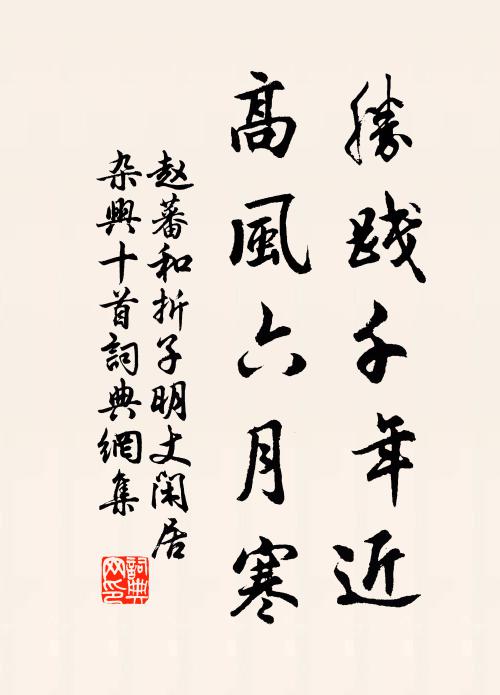 勝踐千年近
高風六月寒
赵蕃和折子明丈閑居
杂興十首詞典網集
詞典
网印